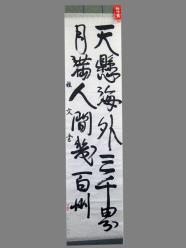 天懸海外三千界
月滿人間幾百州
文書